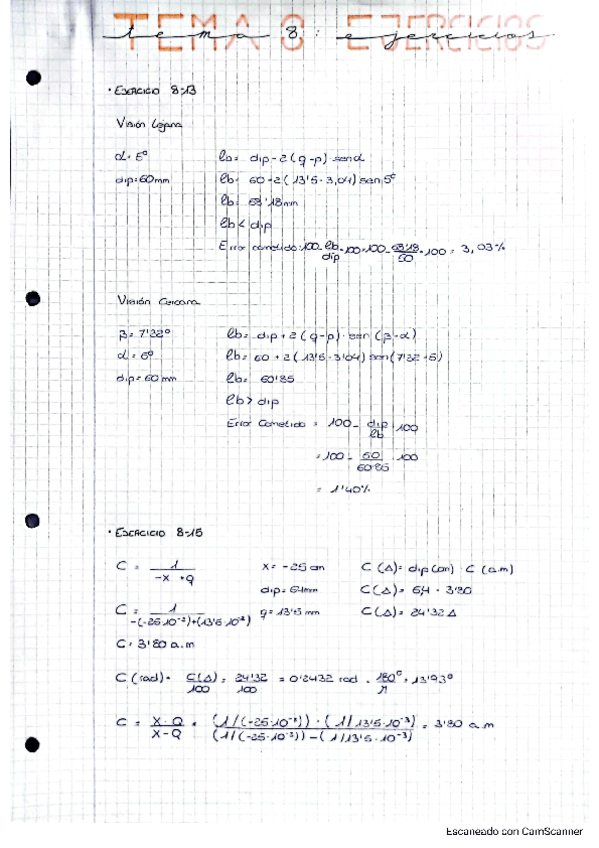 TEMA 8 EJERCICIOS
tema 8: ejercicios.
• EJERCICIO 8-13
Visión Lejana
α = 5° lb = dip - 2(q-p) · senα
dip = 60mm lb = 60 - 2(13'5 - 3,04) sen 5°
lb = 58'18mm
lb < dip
Error cometido: 100 - lb/dip · 100 = 100 - 58'18/60 · 100 = 3,03%
Visión Cercana
β = 7'32° lb = dip + 2(q-p) · sen(β-α)
α = 5° lb = 60 + 2(13'5 - 3'04) sen(7'32 - 5)
dip = 60 mm lb = 60'85
lb > dip
Error Cometido = 100 - dip/lb · 100
= 100 - 60/60'85 · 100
= 1'40%
• EJERCICIO 8-15
C = 1/-x+q x = -25 cm C(Δ) = dip(cm) · C(a.m)
dip = 64mm C(Δ) = 6,4 · 3'80
C = 1/-(-25·10⁻²)+(13'5·10⁻³) q = 13'5 mm C(Δ) = 24'32 Δ
C = 3'80 a.m
C(rad) = C(Δ)/100 = 24'32/100 = 0'2432 rad · 180°/π = 13'93°
C = X·Q/X-Q = (1/(-25·10⁻²)) · (1/13'5·10⁻³)/(1/(-25·10⁻²)) - (1/13'5·10⁻³) = 3'80 a.m
Escaneado con CamScanner